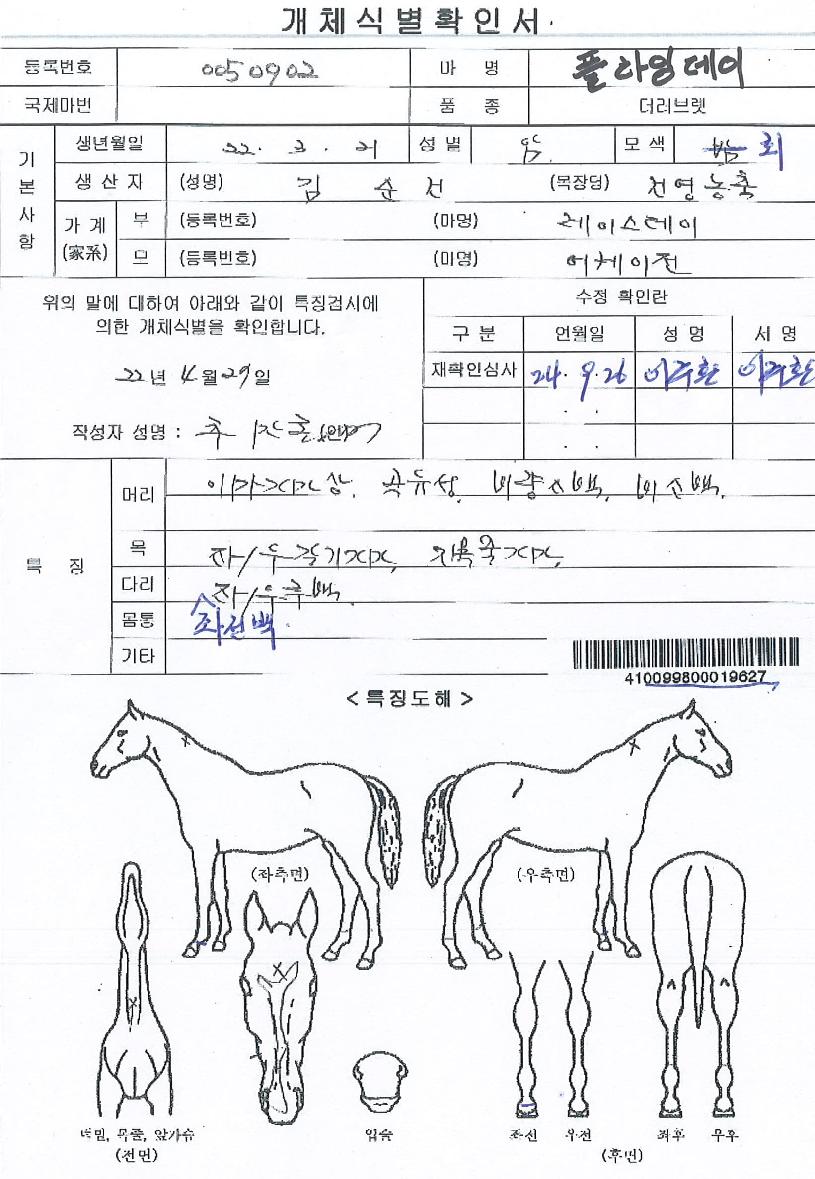 개체식별확인서
등록번호 0050902 마 명 플라잉데이
국제마번 품 종 더러브렛
기본사항
생년월일 22. 3. 21 성 별 암 모 색 밤 회
생 산 자 (성명) 김 순 건 (목장명) 천영농축
가 계 (家系) 부 (등록번호) (마명) 레이스데이
모 (등록번호) (마명) 어케이전
위의 말에 대하여 아래와 같이 특징검사에
의한 개체식별을 확인합니다.
22년 4월 29일
작성자 성명 :
수정 확인란
구 분 연월일 성 명 서 명
재확인심사 24. 9. 26 이주환 이주환
특 징
머리 이마가마상, 곡류성, 비량소백, 비소백.
목 좌/우
다리 좌/우후백.
좌전백.
몸통
기타
410099800019627
< 특징도해 >
(좌측면) (우측면)
턱밑, 목줄, 앞가슴
(전면)
입술
좌전 우전 좌후 우후
(후면)